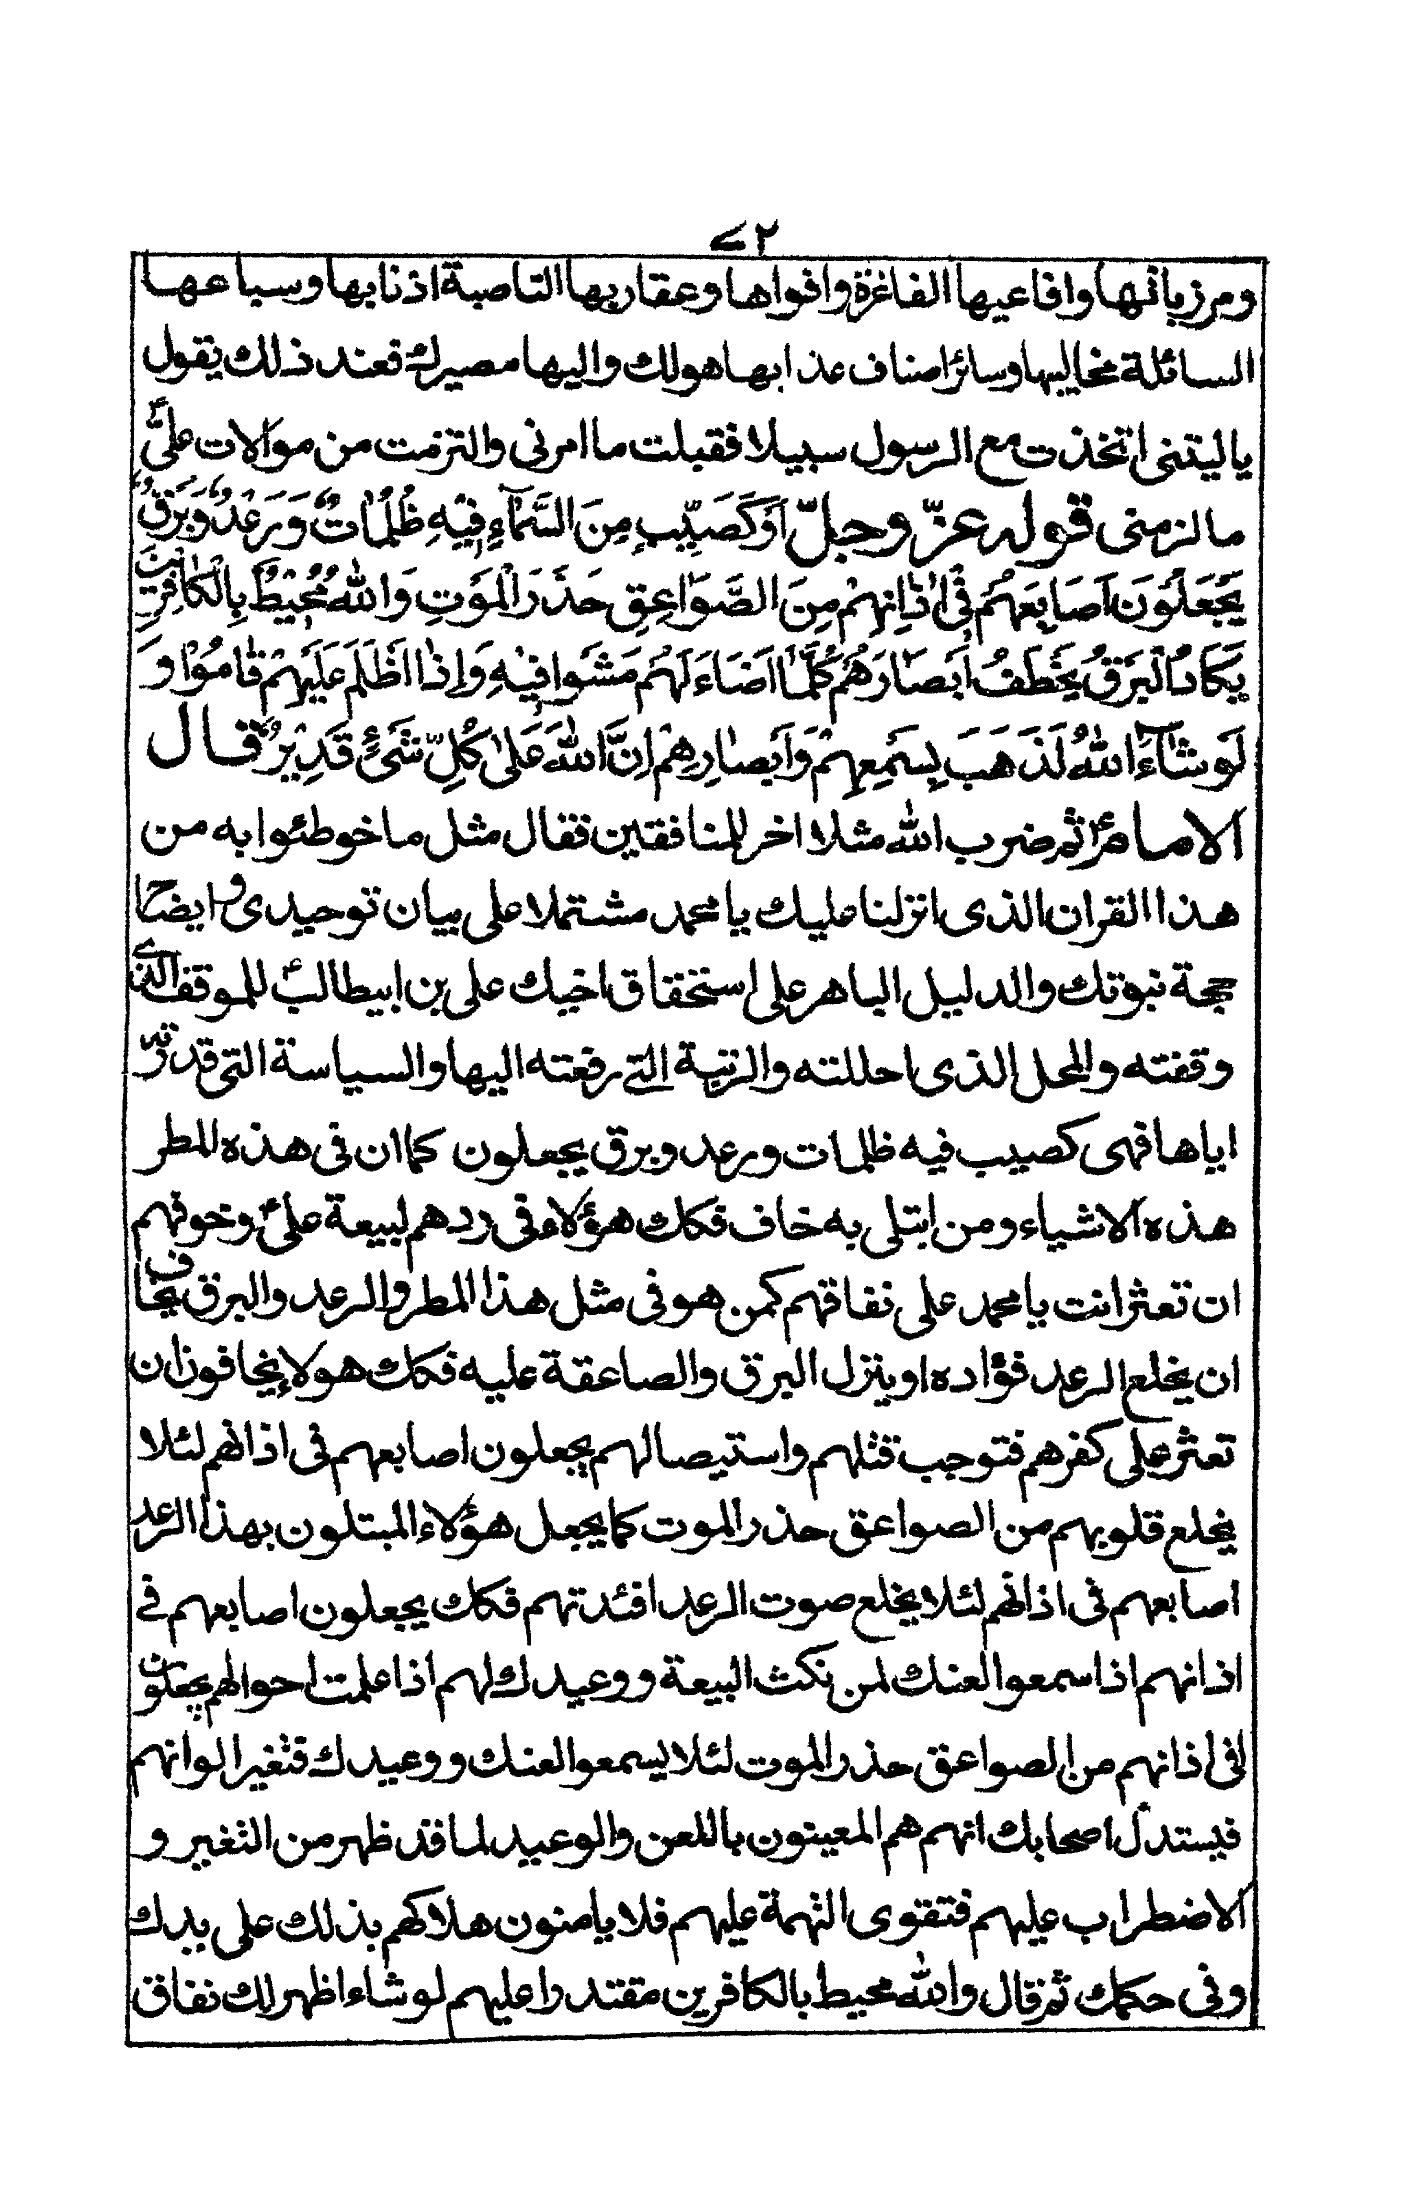 ٧٢
ومرزباتها وافاعيها الفاغرة وافواها وعقاربها التاصبة اذنابها وسباعها
السائلة مخاليبها وسائر اصناف عذابها هولك واليها مصيرك فعند ذلك يقول
يا ليتنى اتخذت مع الرسول سبيلا فقبلت ما امرنى والتزمت من موالات علىّ ع
ما لزمنى قوله عزّ وجلّ اَوْ كَصَيِّبٍ مِنَ السَّمآءِ فِيْهِ ظُلُمٰاتٌ وَرَعْدٌ وَبَرْقٌ
يَجْعَلُوْنَ اَصَابِعَهُمْ فِى اٰذٰانِهِمْ مِنَ الصَّوٰاعِقِ حَذَرَ الْمَوْتِ وَاللهُ مُحِيْطٌ بِالْكٰافِرِيْنَ
يَكَادُ الْبَرْقُ يَخْطَفُ اَبْصٰارَهُمْ كُلَّمٰا اَضٰاءَ لَهُمْ مَشَوْا فِيْهِ وَاِذٰا اَظْلَمَ عَلَيْهِمْ قٰامُوْا وَ
لَوْ شٰآءَ اللهُ لَذَهَبَ بِسَمْعِهِمْ وَاَبْصٰارِهِمْ اِنَّ اللهَ عَلىٰ كُلِّ شَىْءٍ قَدِيْرٌ قال
الامام ع ثم ضرب الله مثلا اخر للمنافقين فقال مثل ما خوطئوا به من
هذا القران الذى انزلنا عليك يا محمد مشتملا على بيان توحيدى وايضاح
حجة نبوتك والدليل الباهر على استحقاق اخيك على بن ابيطالب ع للموقف الذى
وقفته والمحل الذى احللته والرتبة التى رفعته اليها والسياسة التى قدرته
اياها فهى كصيب فيه ظلمات ورعد وبرق يجعلون كما ان فى هذه للطر
هذه الاشياء ومن ابتلى به خاف فكك هؤلاء فى ردهم لبيعة علىّ ع وخوفهم
ان تعثر انت يا محمد على نفاقهم كمن هو فى مثل هذا المطر والرعد والبرق يخاف
ان يخلع الرعد فؤاده او ينزل البرق والصاعقة عليه فكك هولاء يخافون ان
تعثر على كفرهم فتوجب قتلهم واستيصالهم يجعلون اصابعهم فى اذانهم لئلا
يخلع قلوبهم من الصواعق حذر الموت كما يجعل هؤلاء المبتلون بهذا الرعد
اصابعهم فى اذانهم لئلا يخلع صوت الرعد افئدتهم فكك يجعلون اصابعهم فى
اذانهم اذا سمعوا لعنك لمن نكث البيعة ووعيدك لهم اذا علمت احوالهم يجعلون
فى اذانهم من الصواعق حذر الموت لئلا يسمعوا لعنك ووعيدك فتغير الوانهم
فيستدل اصحابك انهم هم المعينون باللعن والوعيد لما قد ظهر من التغير و
الاضطراب عليهم فتقوى التهمة عليهم فلا يامنون هلاكهم بذلك على يدك
وفى حكمك ثم قال والله محيط بالكافرين مقتدرا عليهم لو شاء اظهر لك نفاق